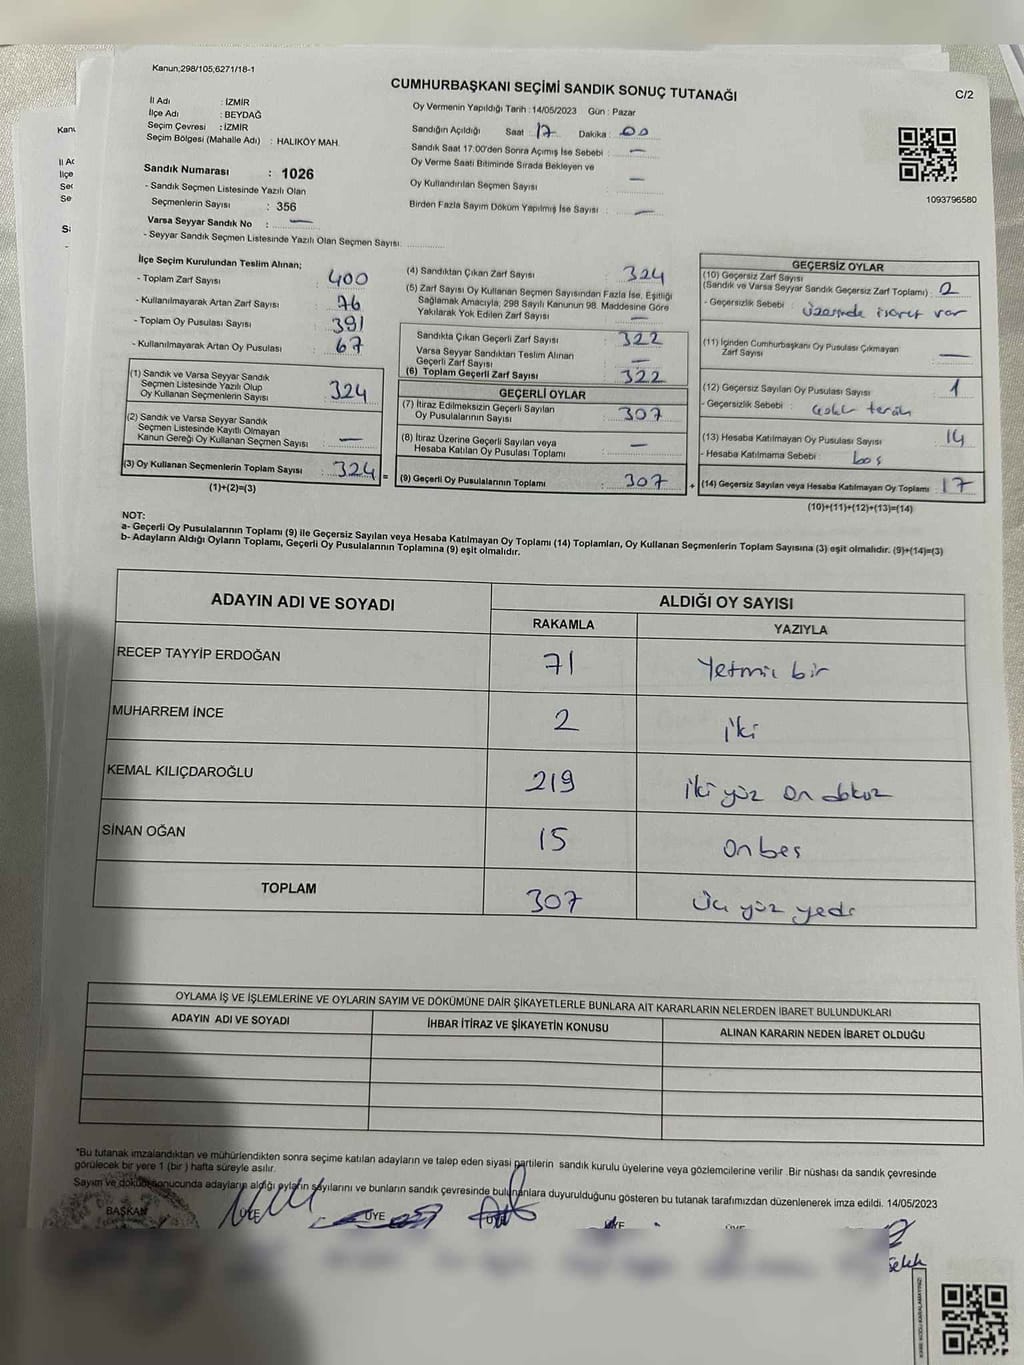 Kanun;298/105,6271/18-1
CUMHURBAŞKANI SEÇİMİ SANDIK SONUÇ TUTANAĞI
C/2
İl Adı : İZMİR
İlçe Adı : BEYDAĞ
Seçim Çevresi : İZMİR
Seçim Bölgesi (Mahalle Adı) : HALIKÖY MAH.
Sandık Numarası : 1026
- Sandık Seçmen Listesinde Yazılı Olan
Seçmenlerin Sayısı : 356
Varsa Seyyar Sandık No : —
- Seyyar Sandık Seçmen Listesinde Yazılı Olan Seçmen Sayısı:
Oy Vermenin Yapıldığı Tarih : 14/05/2023 Gün : Pazar
Sandığın Açıldığı Saat : 17 Dakika : 00
Sandık Saat 17:00'den Sonra Açımış İse Sebebi : —
Oy Verme Saati Bitiminde Sırada Bekleyen ve
Oy Kullandırılan Seçmen Sayısı : —
Birden Fazla Sayım Döküm Yapılmış İse Sayısı : —
1093796580
İlçe Seçim Kurulundan Teslim Alınan;
- Toplam Zarf Sayısı : 400
- Kullanılmayarak Artan Zarf Sayısı : 76
- Toplam Oy Pusulası Sayısı : 391
- Kullanılmayarak Artan Oy Pusulası : 67
(1) Sandık ve Varsa Seyyar Sandık
Seçmen Listesinde Yazılı Olup
Oy Kullanan Seçmenlerin Sayısı : 324
(2) Sandık ve Varsa Seyyar Sandık
Seçmen Listesinde Kayıtlı Olmayan
Kanun Gereği Oy Kullanan Seçmen Sayısı : —
(3) Oy Kullanan Seçmenlerin Toplam Sayısı : 324 =
(1)+(2)=(3)
(4) Sandıktan Çıkan Zarf Sayısı : 324
(5) Zarf Sayısı Oy Kullanan Seçmen Sayısından Fazla İse, Eşitliği
Sağlamak Amacıyla; 298 Sayılı Kanunun 98. Maddesine Göre
Yakılarak Yok Edilen Zarf Sayısı : —
Sandıkta Çıkan Geçerli Zarf Sayısı : 322
Varsa Seyyar Sandıktan Teslim Alınan
Geçerli Zarf Sayısı : —
(6) Toplam Geçerli Zarf Sayısı : 322
GEÇERLİ OYLAR
(7) İtiraz Edilmeksizin Geçerli Sayılan
Oy Pusulalarının Sayısı : 307
(8) İtiraz Üzerine Geçerli Sayılan veya
Hesaba Katılan Oy Pusulası Toplamı : —
(9) Geçerli Oy Pusulalarının Toplamı : 307 +
GEÇERSİZ OYLAR
(10) Geçersiz Zarf Sayısı
(Sandık ve Varsa Seyyar Sandık Geçersiz Zarf Toplamı) : 2
- Geçersizlik Sebebi : üzerinde işaret var
(11) İçinden Cumhurbaşkanı Oy Pusulası Çıkmayan
Zarf Sayısı : —
(12) Geçersiz Sayılan Oy Pusulası Sayısı : 1
- Geçersizlik Sebebi :
(13) Hesaba Katılmayan Oy Pusulası Sayısı : 14
- Hesaba Katılmama Sebebi : boş
(14) Geçersiz Sayılan veya Hesaba Katılmayan Oy Toplamı : 17
(10)+(11)+(12)+(13)=(14)
NOT:
a- Geçerli Oy Pusulalarının Toplamı (9) ile Geçersiz Sayılan veya Hesaba Katılmayan Oy Toplamı (14) Toplamları, Oy Kullanan Seçmenlerin Toplam Sayısına (3) eşit olmalıdır. (9)+(14)=(3)
b- Adayların Aldığı Oyların Toplamı, Geçerli Oy Pusulalarının Toplamına (9) eşit olmalıdır.
ADAYIN ADI VE SOYADI
ALDIĞI OY SAYISI
RAKAMLA YAZIYLA
RECEP TAYYİP ERDOĞAN 71 Yetmiş bir
MUHARREM İNCE 2 iki
KEMAL KILIÇDAROĞLU 219 iki yüz on dokuz
SİNAN OĞAN 15 on beş
TOPLAM 307 Üç yüz yedi
OYLAMA İŞ VE İŞLEMLERİNE VE OYLARIN SAYIM VE DÖKÜMÜNE DAİR ŞİKAYETLERLE BUNLARA AİT KARARLARIN NELERDEN İBARET BULUNDUKLARI
ADAYIN ADI VE SOYADI İHBAR İTİRAZ VE ŞİKAYETİN KONUSU ALINAN KARARIN NEDEN İBARET OLDUĞU
*Bu tutanak imzalandıktan ve mühürlendikten sonra seçime katılan adayların ve talep eden siyasi partilerin sandık kurulu üyelerine veya gözlemcilerine verilir .Bir nüshası da sandık çevresinde
görülecek bir yere 1 (bir ) hafta süreyle asılır.
Sayım ve döküm sonucunda adayların aldığı oyların sayılarını ve bunların sandık çevresinde bulunanlara duyurulduğunu gösteren bu tutanak tarafımızdan düzenlenerek imza edildi. 14/05/2023
BAŞKAN ÜYE ÜYE ÜYE ÜYE ÜYE